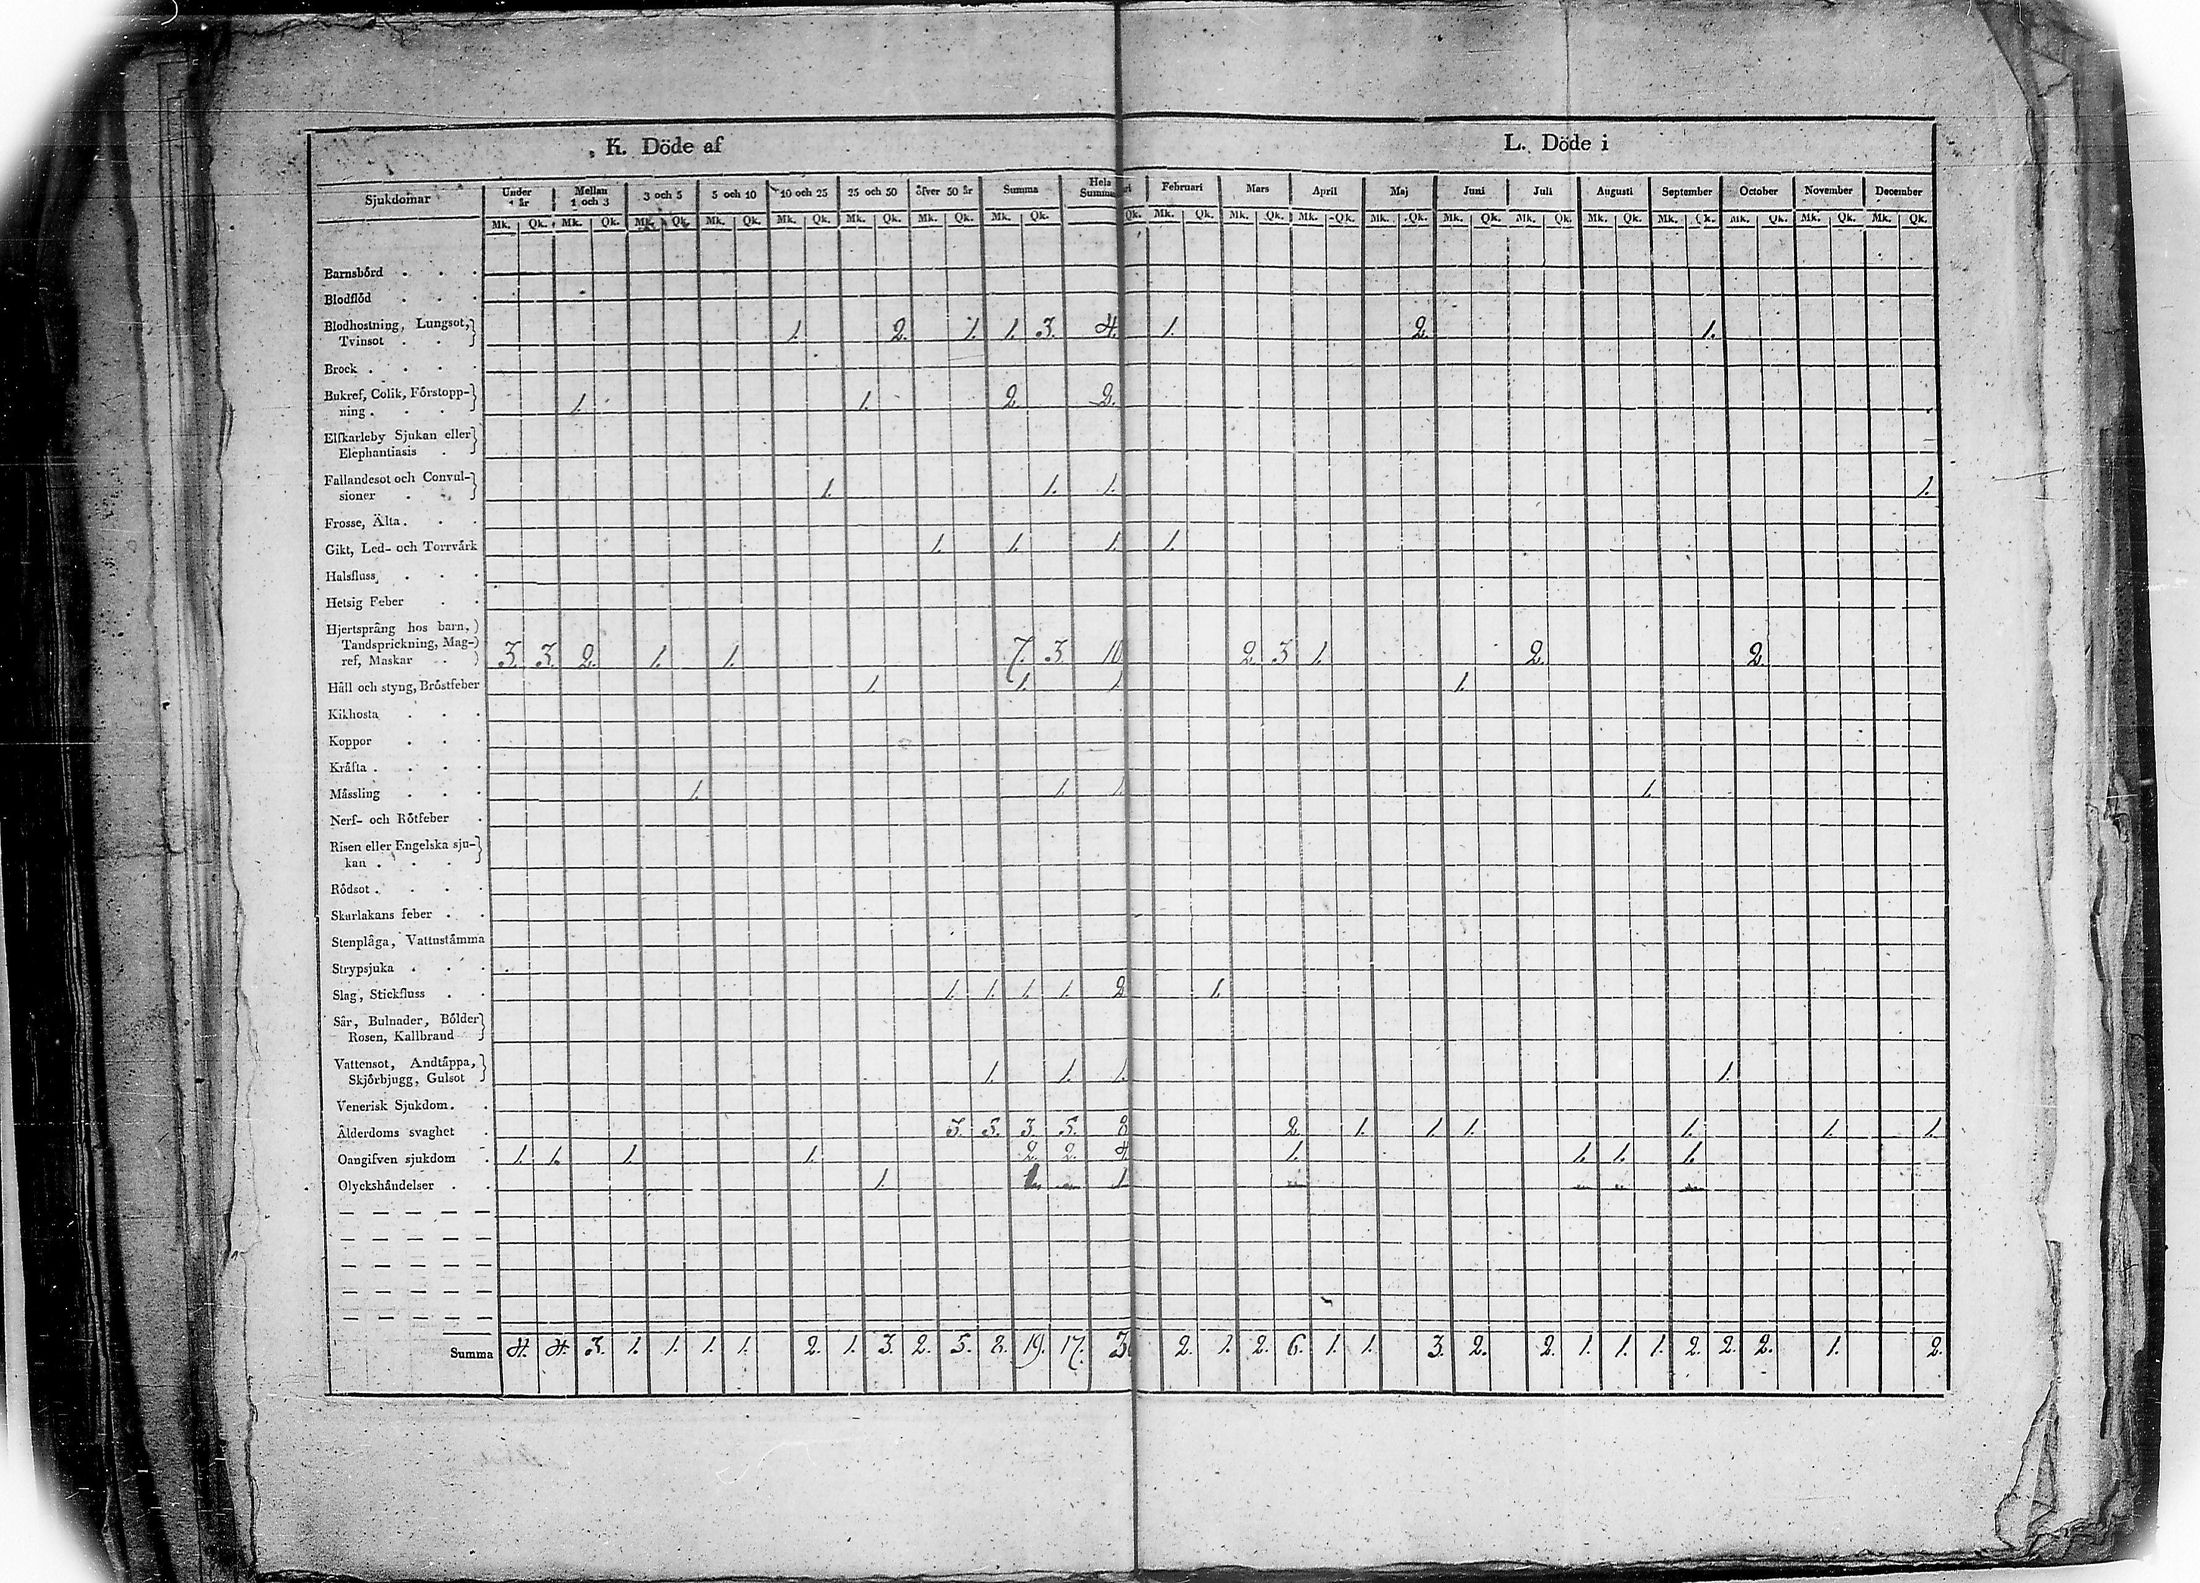 K. Döde af L. Döde i
Sjukdomar Under 1 år Mellan 1 och 3 3 och 5 5 och 10 10 och 25 25 och 50 öfver 50 år Summa Hela Summa Februari Mars April Maj Juni Juli Augusti September October November December
Mk. Qk. Mk. Qk. Mk. Qk. Mk. Qk. Mk. Qk. Mk. Qk. Mk. Qk. Mk. Qk. Qk. Mk. Qk. Mk. Qk. Mk. Qk. Mk. Qk. Mk. Qk. Mk. Qk. Mk. Qk. Mk. Qk. Mk. Qk. Mk. Qk. Mk. Qk.
Barnsbörd . . .
Blodflöd . . .
Blodhostning, Lungsot,
Tvinsot . . 1. 2. 1. 1. 3. 4. 1. 2. 1.
Brock . . . .
Bukref, Colik, Förstopp-
ning . . . . 1. 1. 2. 2.
Elfkarleby Sjukan eller
Elephantiasis .
Fallandesot och Convul-
sioner . . 1. 1. 1. 1.
Frosse, Älta . . .
Gikt, Led- och Torrvärk 1. 1. 1. 1.
Halsfluss . . .
Hetsig Feber . .
Hjertsprång hos barn,
Tandsprickning, Mag-
ref, Maskar . . 3. 3. 2. 1. 1. 7. 3. 10 2. 3. 1. 2. 2.
Håll och styng, Bröstfeber 1. 1. 1 1.
Kikhosta . . .
Koppor . . .
Kräfta . . . .
Mässling . . . 1. 1. 1 1.
Nerf- och Rötfeber .
Risen eller Engelska sju-
kan . . . .
Rödsot . . . .
Skarlakans feber . .
Stenplåga, Vattustämma
Strypsjuka . . .
Slag, Stickfluss . . 1. 1. 1. 1. 2 1.
Sår, Bulnader, Bölder
Rosen, Kallbrand
Vattensot, Andtäppa,
Skjörbjugg, Gulsot 1. 1. 1. 1.
Venerisk Sjukdom . .
Ålderdoms svaghet . 3. 5. 3. 5. 8 2. 1. 1. 1. 1. 1. 1.
Oangifven sjukdom . 1. 1. 1. 1. 2. 2. 4. 1. 1. 1. 1.
Olyckshändelser . . 1. 1
Summa 4. 4. 3. 1. 1. 1. 1. 2. 1. 3. 2. 5. 8. 19. 17. 2. 1. 2. 6. 1. 1. 3. 2. 2. 1. 1. 1. 2. 2. 2. 1. 2.